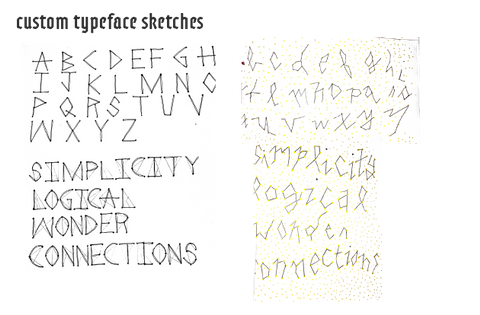 custom typeface sketches
A B C D E F G H
I J K L M N O
P Q R S T U V
W X Y Z
SIMPLICITY
LOGICAL
WONDER
CONNECTIONS
b c d e f g h i
u v w x y z
simplicity
logical
wonder
connections